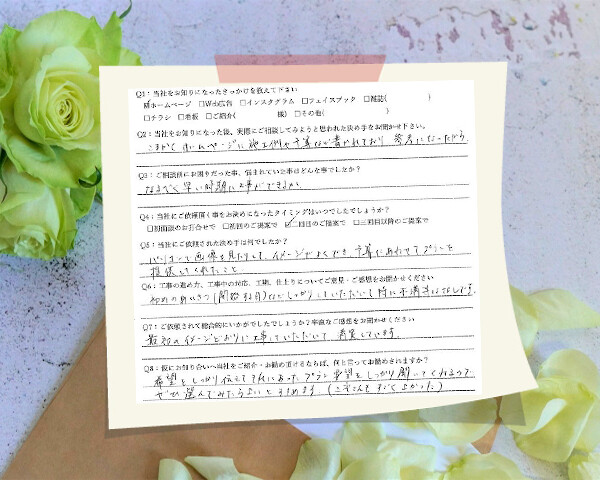 Q1：当社をお知りになったきっかけを教えて下さい
☑ホームページ　□Web広告　□インスタグラム　□フェイスブック　□雑誌(　　　　)
□チラシ　□看板　□ご紹介(　　　　様)　□その他(　　　　)
Q2：当社をお知りになった後、実際にご相談してみようと思われた決め手をお聞かせ下さい。
こまかくホームページに施工例や予算など書かれており 参考になったから
Q3：ご相談前にお困りだった事、悩まれていた事はどんな事でしたか？
なるべく早い時期に工事ができるか
Q4：当社にご依頼頂く事をお決めになったタイミングはいつでしたでしょうか？
□初面談のお打合せで　□初回のご提案で　☑二回目のご提案で　□三回目以降のご提案で
Q5：当社にご依頼された決め手は何でしたか？
パソコンで画像を見たりして、イメージがよくでき、予算にあわせてプランを
提供してくれたこと
Q6：工事の進め方、工事中の対応、工期、仕上りについてご意見・ご感想をお聞かせください
初めのあいさつ(開始お知)などしっかりしていただいて特に不満等はなしです。
Q7：ご依頼されて総合的にいかがでしたでしょうか？率直なご感想をお聞かせください
最初のイメージどおりに工事していただいて 満足しています。
Q8：仮にお知り合いへ当社をご紹介・お勧め頂けるならば、何と言ってお勧めされますか？
希望をしっかり伝えてそれにあったプラン 要望をしっかり聞いてくれるので
ぜひ選んでみたらよいとすすめます